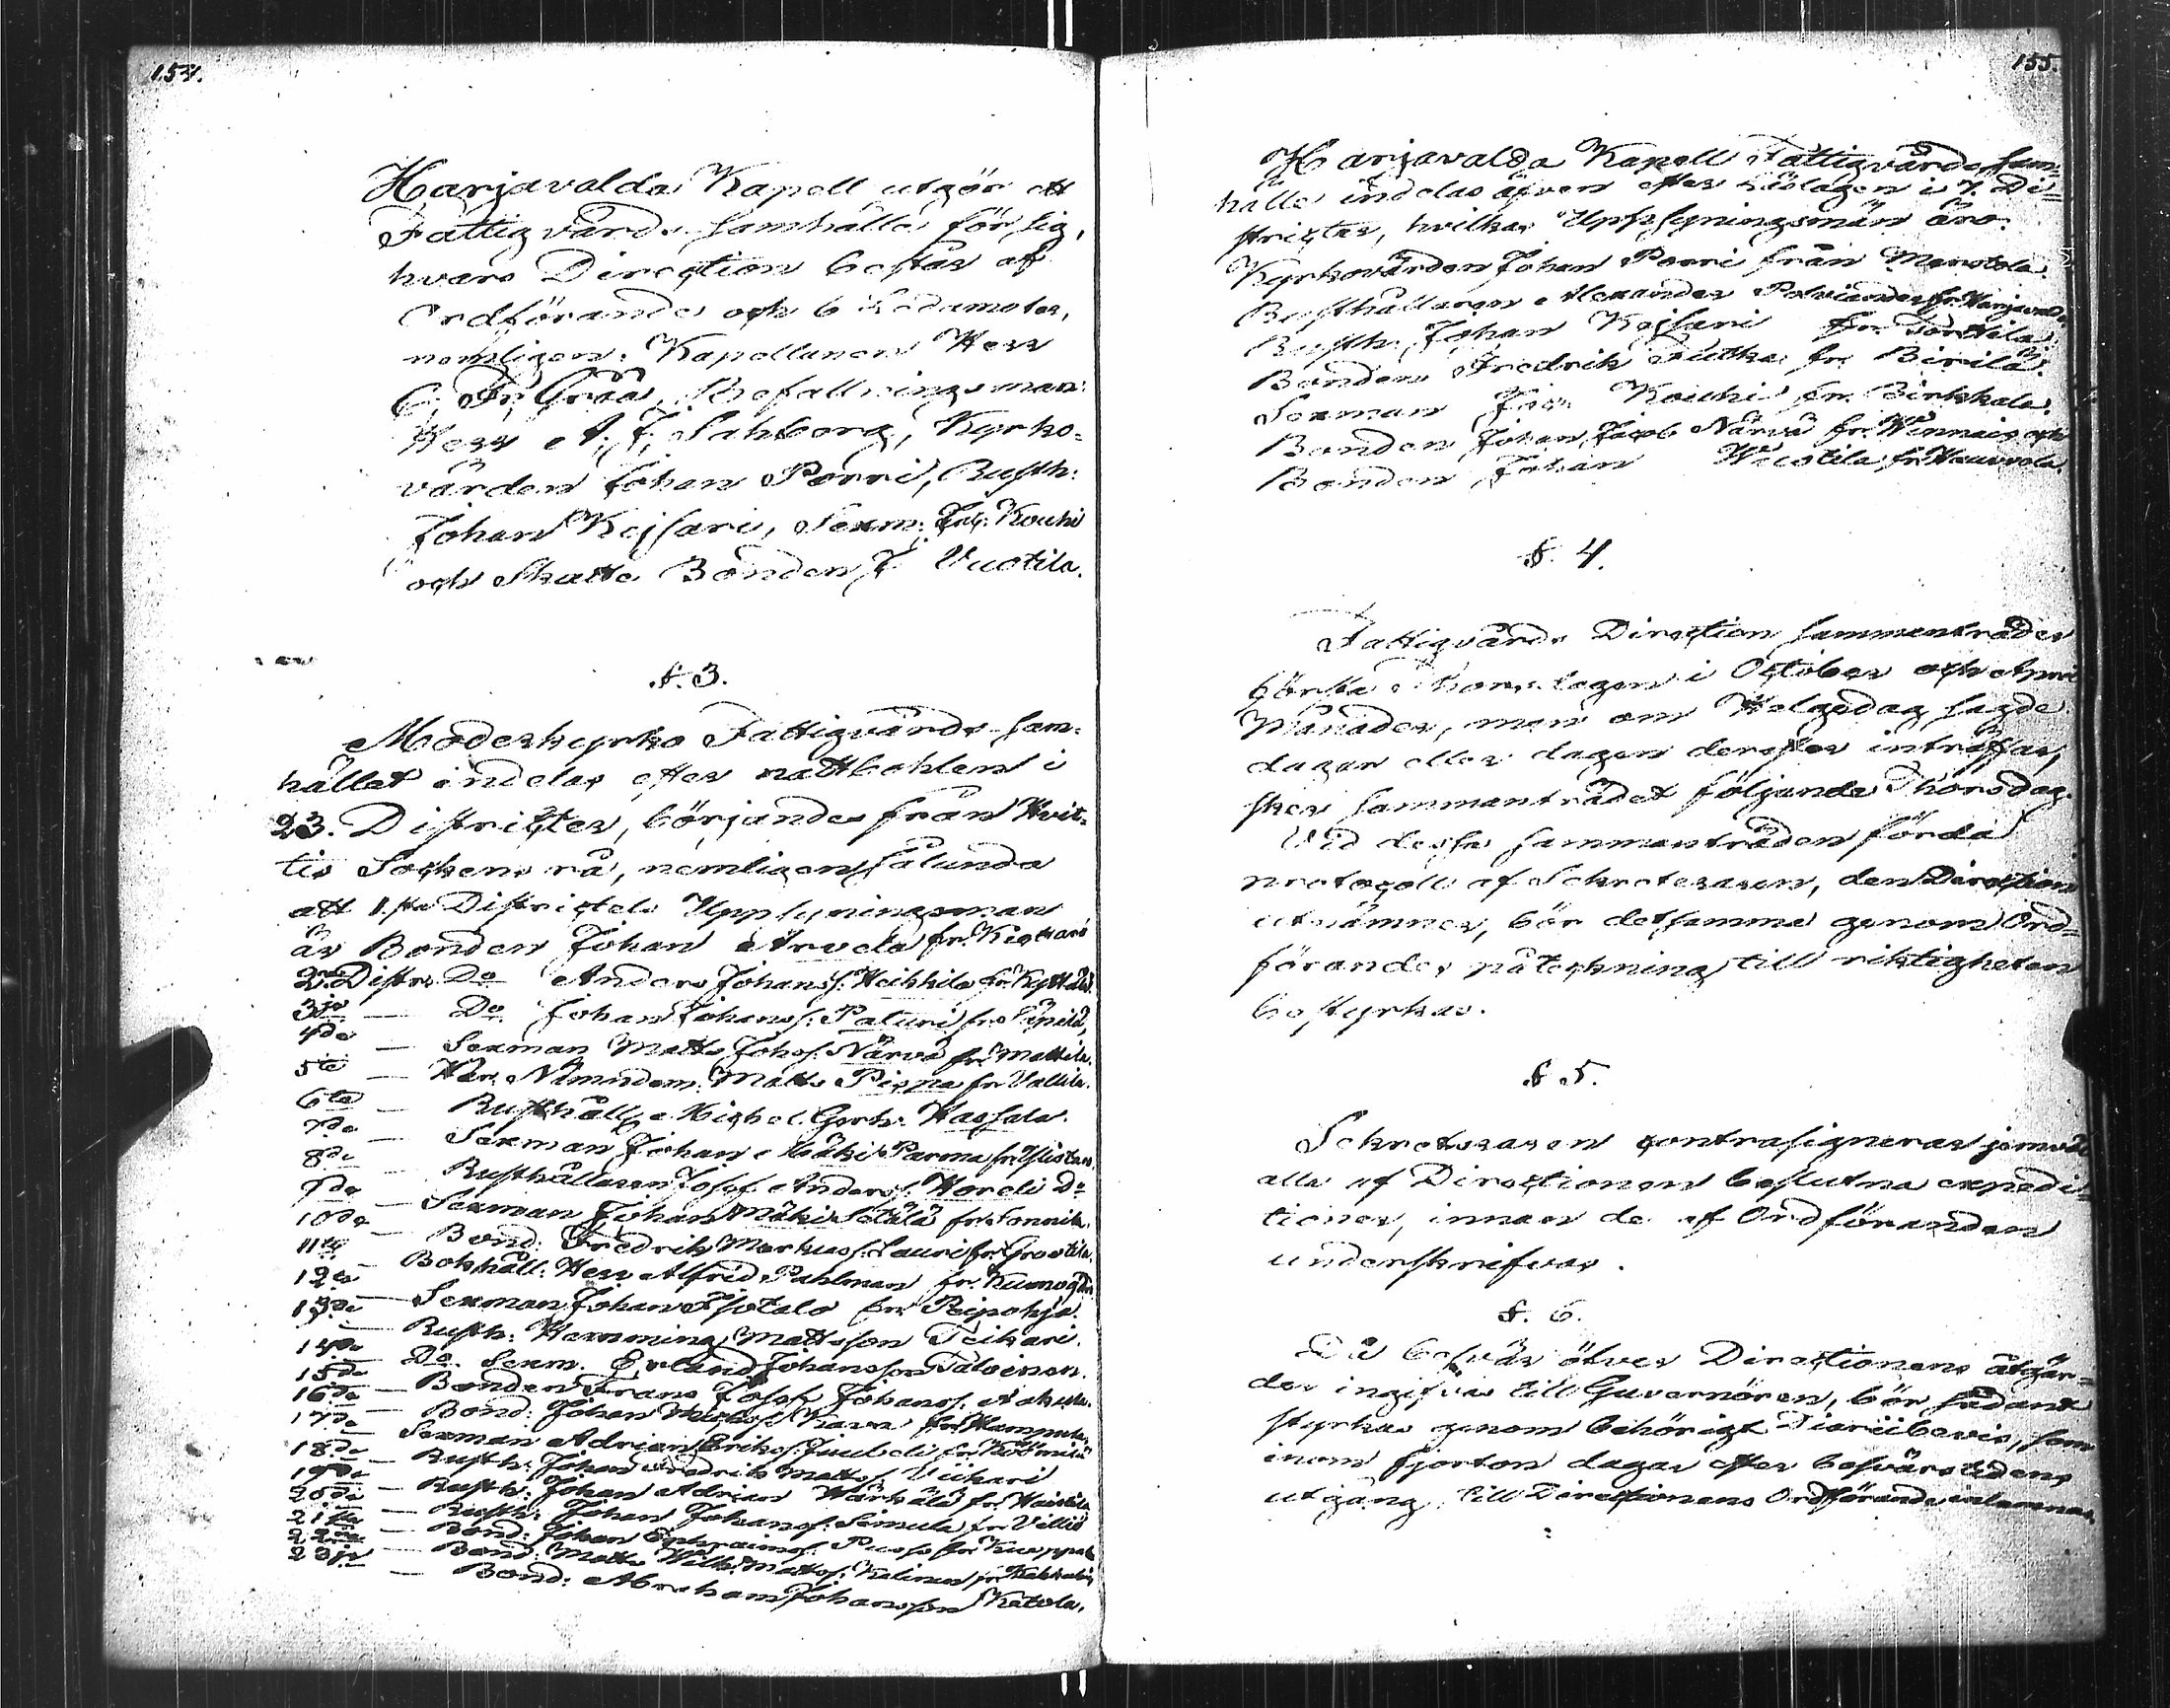 154.
Harjavalda Kapell utgör ett
Fattigvårds samhälle för sig,
hvars Direction består af
Ordförande och 6 Ledamoter,
nemligen: Kapellanen Herr
C. Fr. Gråå, Befallningsman:
Herr A. F. Sahlberg, Kyrko-
vården Johan Porri, Rusth:
Johan Kejsari, Sexm: Jac: Kouhi
och Skatte Bonden J. Vuotila.
§. 3.
Moderkyrko Fattigvårds Sam-
hället indelas efter rättbohlen i
23. Districter, börjandes från Hvit-
tis Sockens rå, nemligen sålunda
att 1.sta Districtets Upplysningsman
är Bonden Johan Arvela fr.
2. Distr. Do Anders Johanss. Heikkilä fr. Kyttälä.
3je — Do Johan Johanss. Paturi fr.
4de — Sexman Matts Johss. Närvä fr. Mattila.
5te — Här. Nämndem: Matts Pippa fr. Vallila.
6te — Rusthåll. Michel Hassala.
7de — Sexman Johan Mäki Parma fr.
8de — Rusthållaren Josef Anders. Horeli Do
9de — Sexman Johan Mäki Sotälä fr. Sonnila.
10de — Bond: Fredrik Markuss. Lauri fr. Grootila.
11te — Bokhåll: Herr Alfred Pahlman fr.
12te — Sexman Johan Isotalo fr. Peipohja.
13de — Rusth: Hemming Mattsson Teikari.
14de — Do Sexm. Erland Johansson Talvenen.
15de — Bonden Frans Josef Johanss.
16de — Bond: Johan Kaura fr. Hampula.
17de — Sexman Adrian Erikss. Juubeli fr.
18de — Rusth: Johan Fredrik Matts. Viikari
19de — Rusth: Johan Adrian Wärkälä fr. Haistila
20de — Rusth: Johan Johanss. Simula fr. Villiö
21sta — Bond: Johan Ephraimss. fr.
22dra — Bond: Matts Wilh: Mattss. fr.
23je — Bond: Abraham Johansson Ketola.
155.
Harjavalda Kapell Fattigvårds sam-
hälle indelas äfven efter i 7. Di-
stricter, hvilkas Upplysningsmän äro:
Kyrkovärden Johan Porri från Merstola.
Rusthållaren Alexander fr. Harjavalda
Rusth: Johan Kejsari fr. Torttila
Bonden Fredrik fr. Pirilä.
Sexman Jac: Kouhi fr. Pirkkala.
Bonden Johan Jacob Närvä fr. Winnais och
Bonden Johan Wuotila fr.
§. 4.
Fattigvårds Direction sammenträder
första i October och April
Månader, men om Helgedag sagde
dagar eller dagen derefter inträffar,
sker sammanträdet följande Thorsdag.
Vid dessa sammanträden förda
protocoll af Sekreteraren, den Direction
utnämner, bör detsamma genom Ord-
förandes påteckning till riktigheten
bestyrkas.
§. 5.
Sekreteraren contrasignerar jemväl
alla af Directionen beslutna expedi-
tioner, innan de af Ordföranden
underskrifvas.
§. 6.
Då besvär öfver Directionens åtgär-
der ingifvas till Guvernören, bör sådant
styrkas genom behörigt Diariibevis, som
inom fjorton dagar efter besvärstidens
utgång, till Directionens Ordförande inlemnas.